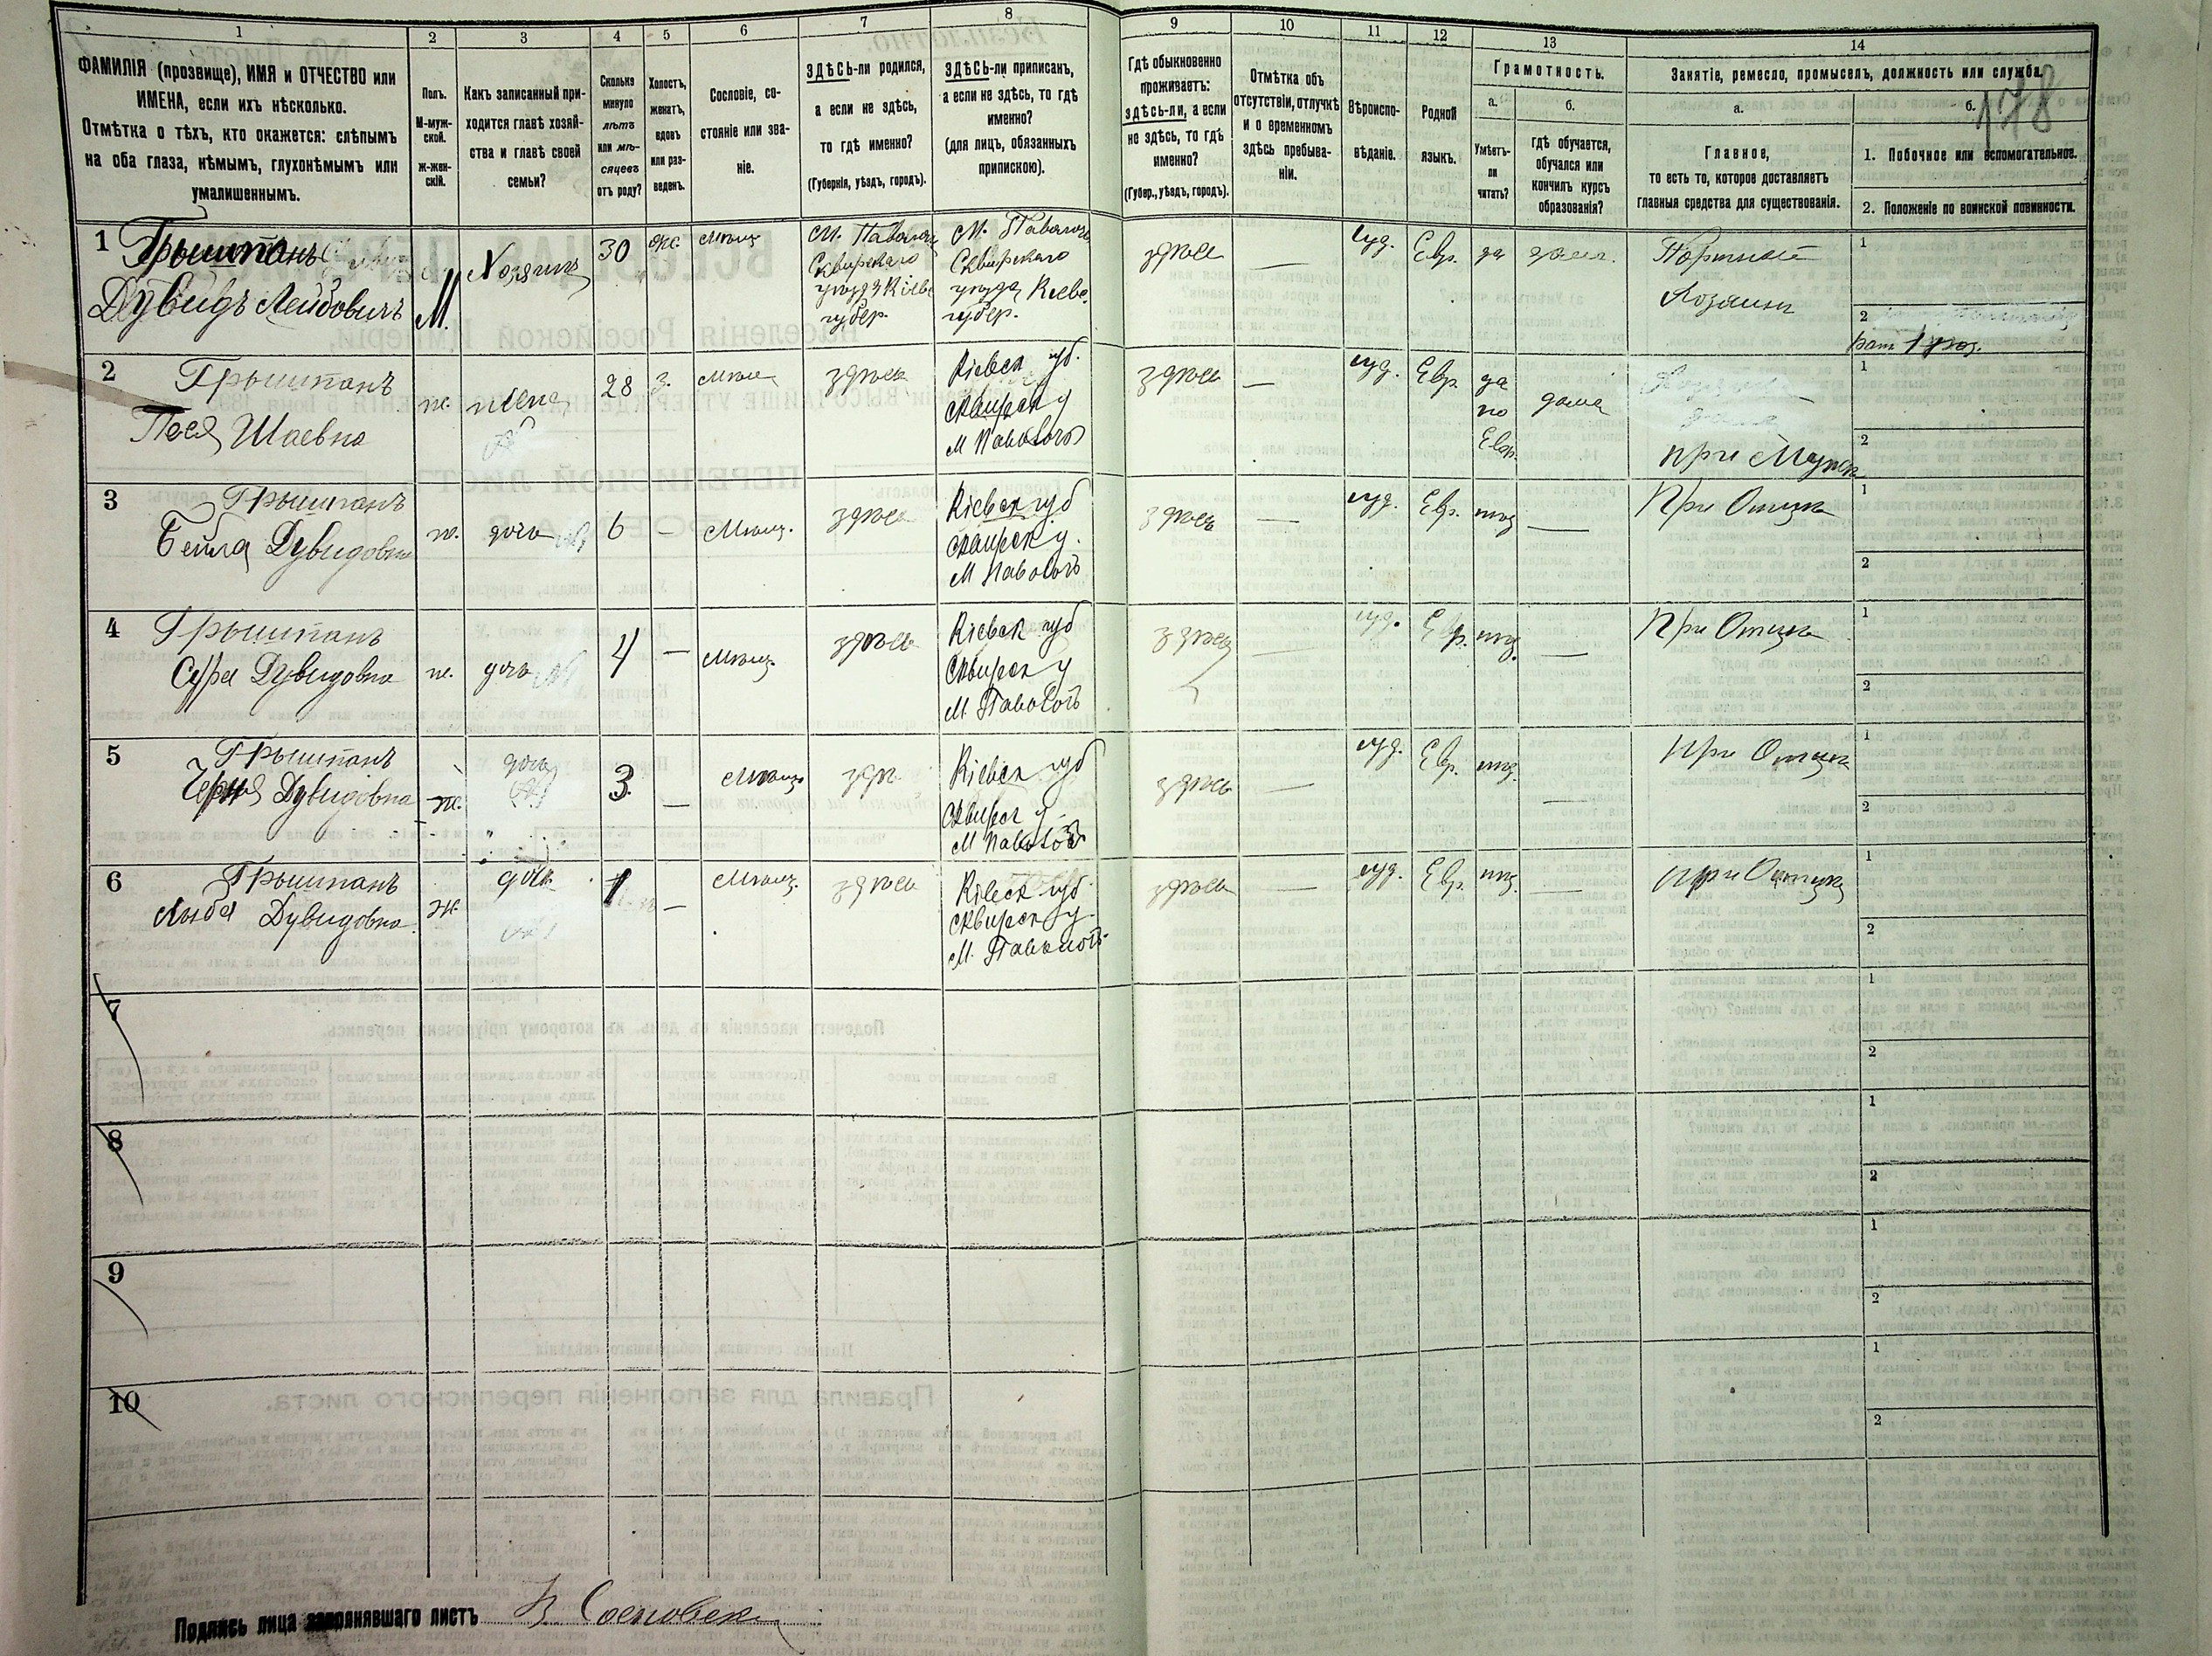 1 2 3 4 5 6 7 8 9 10 11 12 13 14
ФАМИЛІЯ (прозвище), ИМЯ и ОТЧЕСТВО или
ИМЕНА, если ихъ нѣсколько.
Отмѣтка о тѣхъ, кто окажется: слѣпымъ
на оба глаза, нѣмымъ, глухонѣмымъ или
умалишеннымъ.
Полъ.
М-муж-
ской.
ж-жен-
скій.
Какъ записанный при-
ходится главѣ хозяй-
ства и главѣ своей
семьи?
Сколько
минуло
лѣтъ
или мѣ-
сяцевъ
отъ роду?
Холостъ,
женатъ,
вдовъ
или раз-
веденъ.
Сословіе, со-
стояніе или зва-
ніе.
ЗДѢСЬ-ли родился,
а если не здѣсь,
то гдѣ именно?
(Губернія, уѣздъ, городъ).
ЗДѢСЬ-ли приписанъ,
а если не здѣсь, то гдѣ
именно?
(для лицъ, обязанныхъ
припискою).
Гдѣ обыкновенно
проживаетъ:
ЗДѢСЬ-ли, а если
не здѣсь, то гдѣ
именно?
(Губер., уѣздъ, городъ).
Отмѣтка объ
отсутствіи, отлучкѣ
и о временномъ
здѣсь пребыва-
ніи.
Вѣроиспо-
вѣданіе.
Родной
языкъ.
Грамотность.
а.
Умѣетъ-
ли
читать?
б.
гдѣ обучается,
обучался или
кончилъ курсъ
образованія?
Занятіе, ремесло, промыселъ, должность или служба.
178
а.
Главное,
то есть то, которое доставляетъ
главныя средства для существованія.
б.
1. Побочное или вспомогательное.
2. Положеніе по воинской повинности.
1 Грыштанъ
Дувидъ Лейбовичъ
М.
Хозяинъ
30
же.
Мѣщ.
М. Паволочъ
Сквирскаго
уѣзда Кіевс
губер.
М. Паволочъ
Сквирскаго
уѣзда Кіевс.
губер.
здѣсь
—
іуд.
Евр.
да
дома.
Портной
Хозяинъ
1
2
2 Грыштанъ
Песя Шаевна
ж.
жена
28
з.
Мѣщ
здѣсь
Кіевск губ.
Сквирск у
М Паволочъ
здѣсь
—
іуд.
Евр
да
по
Евр.
дома
при Мужѣ
1
2
3 Грыштанъ
Бейла Дувидовна
ж.
дочь
6
—
Мѣщ.
здѣсь
Кіевск губ
Сквирск у.
М Паволочъ
здѣсь
—
іуд.
Евр.
нѣт
—
При Отцѣ
1
2
4 Грыштанъ
Сура Дувидовна
ж.
дочь
4
—
Мѣщ.
здѣсь
Кіевск губ
Сквирск у
М. Паволочъ
здѣсь
—
іуд.
Евр.
нѣт.
—
При Отцѣ
1
2
5 Грыштанъ
Черня Дувидовна
ж.
дочь
3
—
Мѣщ
здѣ
Кіевск губ
Сквирск у
М Паволочъ
здѣсь
—
іуд.
Евр.
нѣт.
—
При Отцѣ
1
2
6 Грыштанъ
Лыба Дувидовна
ж.
дочь
1
—
Мѣщ.
здѣсь
Кіевск губ
Сквирск у.
М. Паволочъ
здѣсь
—
іуд.
Евр.
нѣт.
—
при Отцѣ
1
2
7
1
2
8
1
2
9
1
2
10
1
2
Подпись лица заполнявшаго листъ